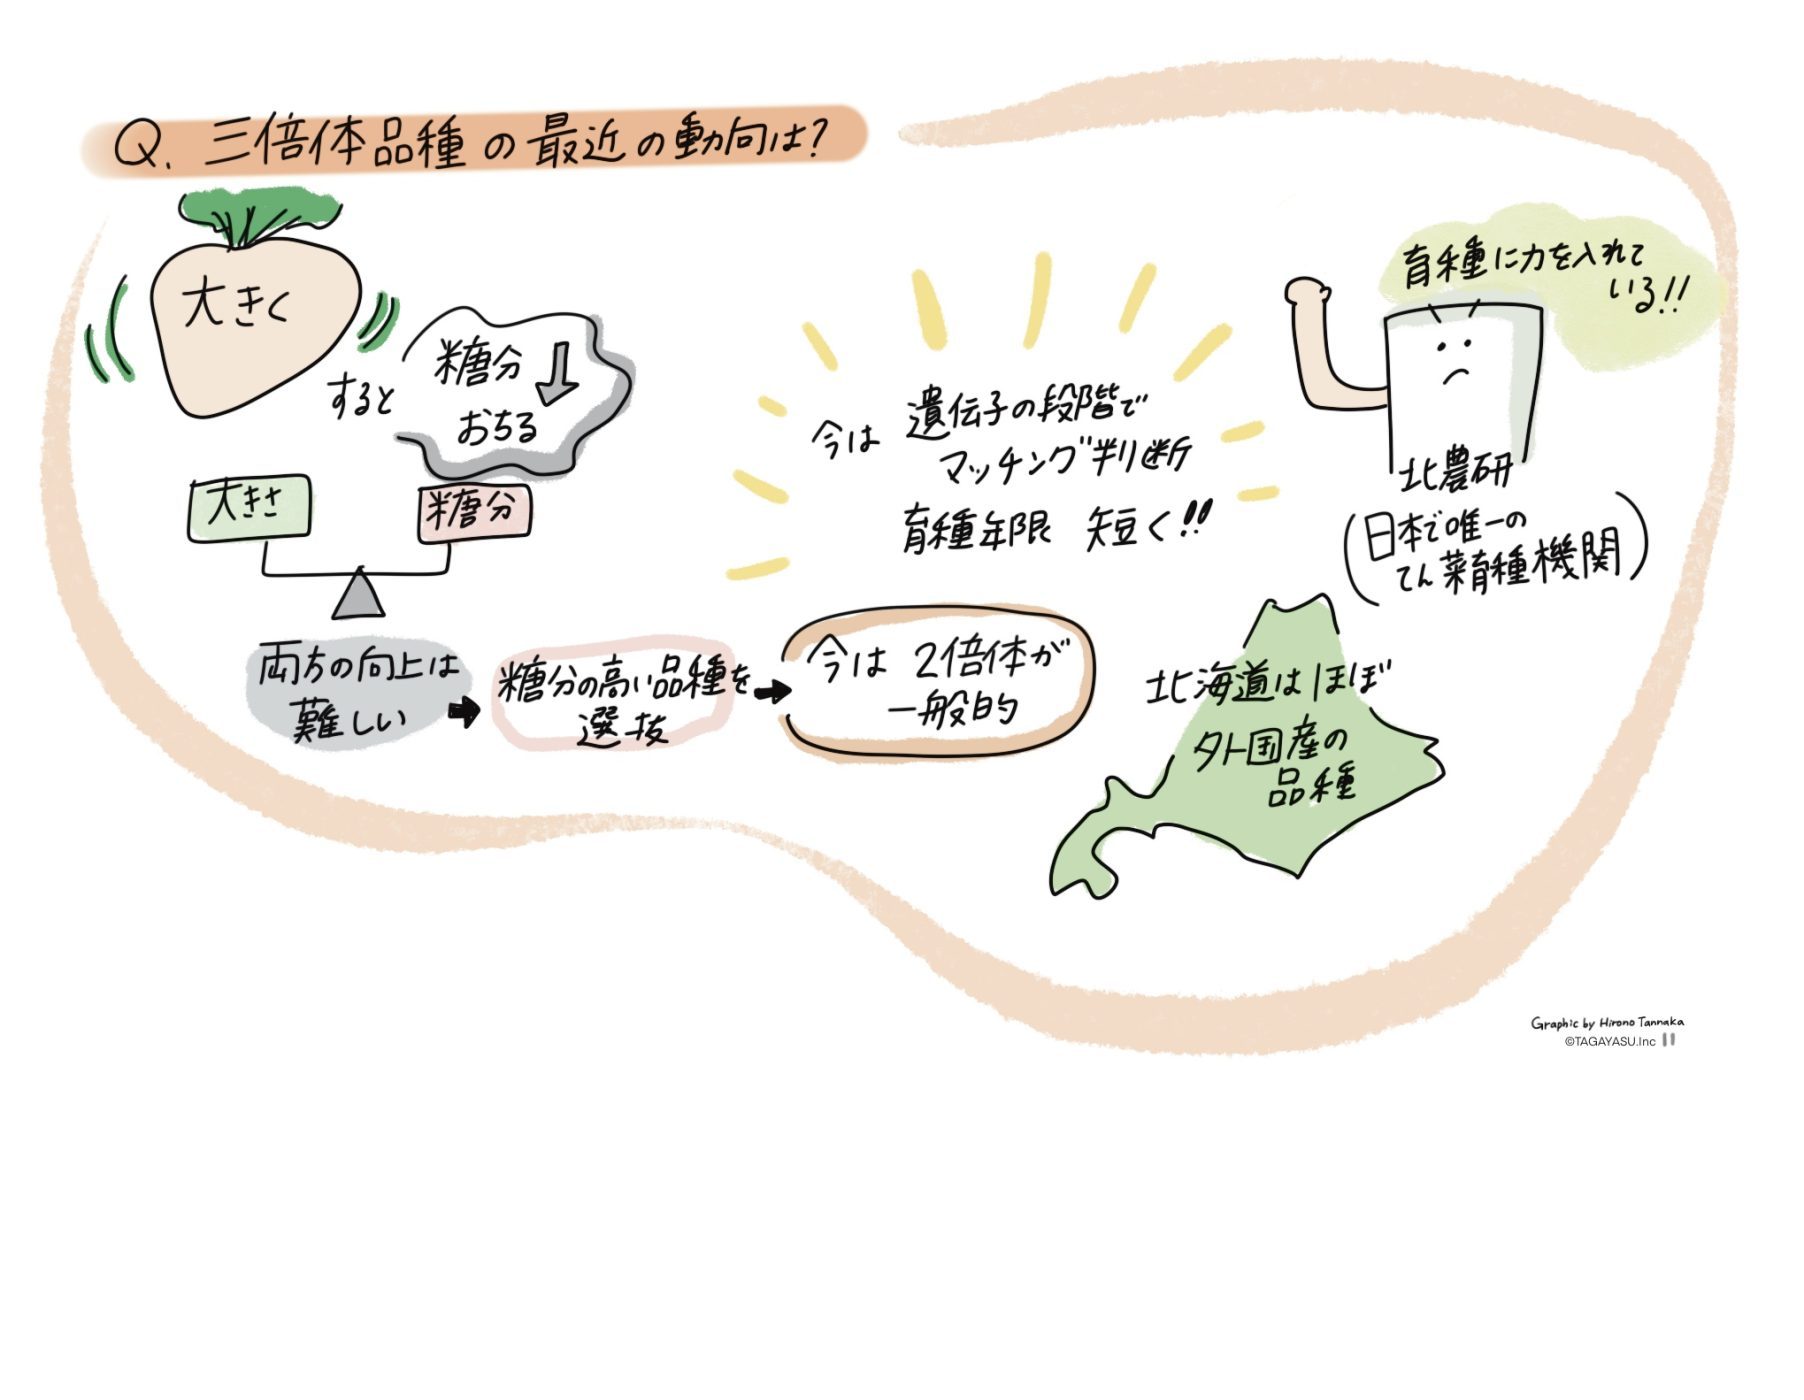 Q. 三倍体品種の最近の動向は?
大きく
すると
糖分
おちる
大きさ
糖分
両方の向上は
難しい
糖分の高い品種を
選抜
今は 2倍体が
一般的
今は 遺伝子の段階で
マッチング判断
育種年限 短く!!
育種に力を入れて
いる!!
北農研
(日本で唯一の
てん菜育種機関)
北海道はほぼ
外国産の
品種
Graphic by Hirono Tannaka
©TAGAYASU.Inc